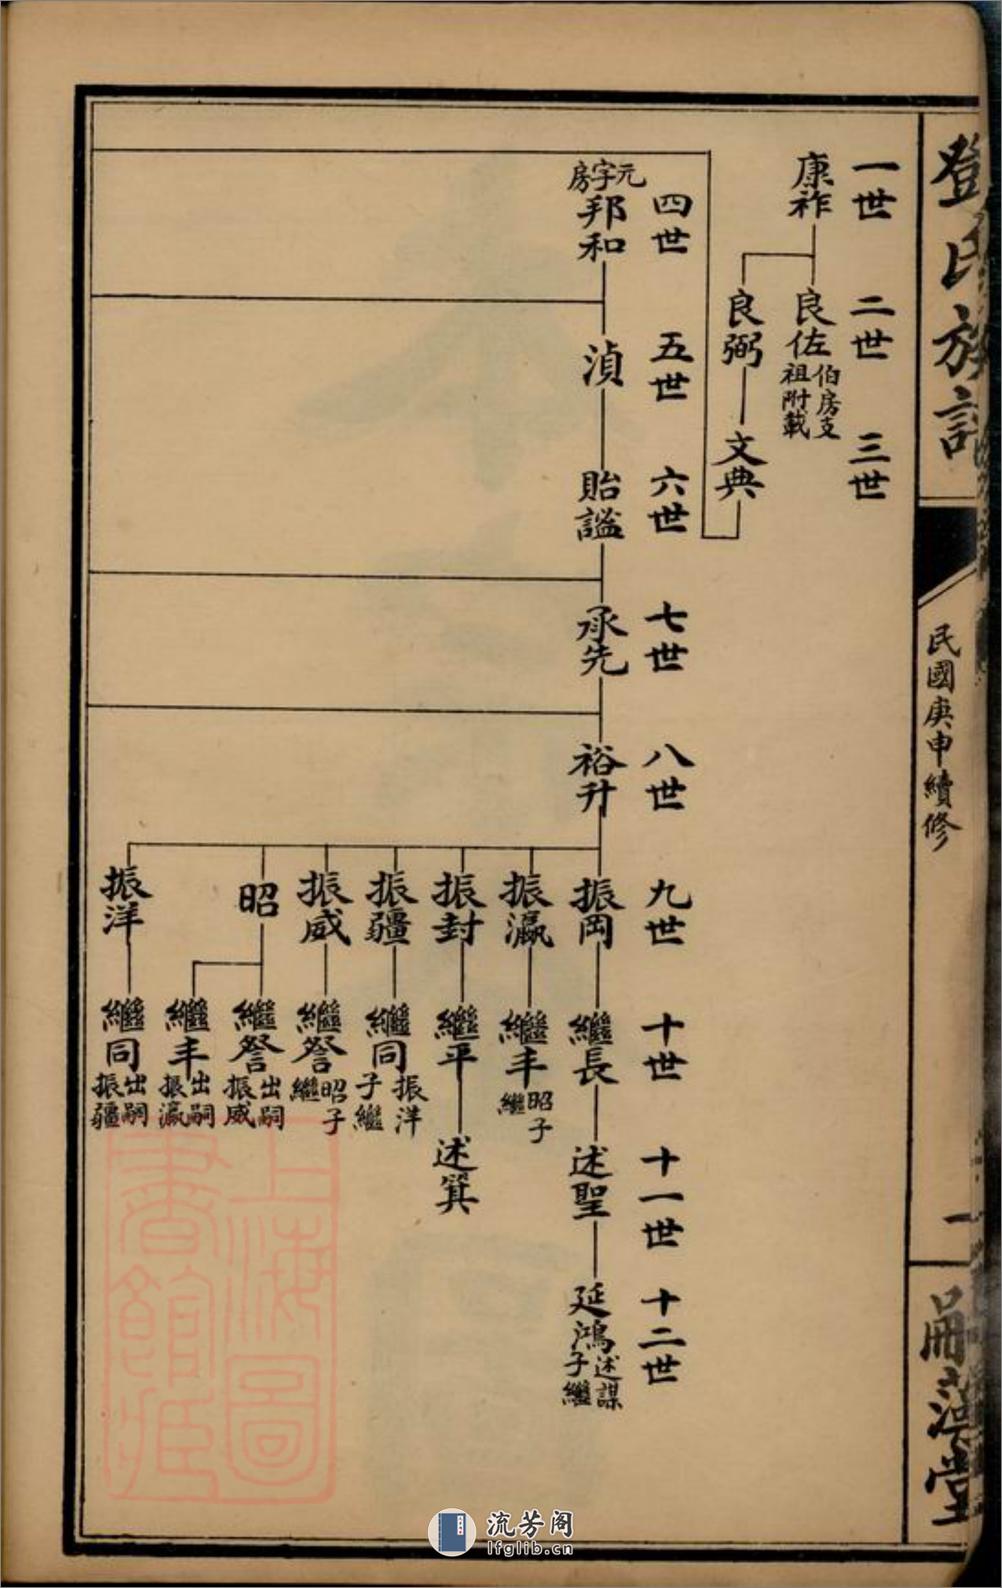 氏族譜
民國庚申續修
一
堂
一世
康祚
二世
良佐
伯房支
祖附載
良弼
三世
文典
四世
元字房
邦和
五世
湞
六世
貽謐
七世
承先
八世
裕升
九世
振岡
振瀛
振封
振疆
振威
昭
振洋
十世
繼長
繼丰
昭子
繼
繼平
繼同
振洋
子繼
繼詧
昭子
繼
繼詧
出嗣
振威
繼丰
出嗣
振瀛
繼同
出嗣
振疆
十一世
述聖
述箕
十二世
延鴻
述謀
子繼
上海圖
書館藏
流芳阁
lfglib.cn